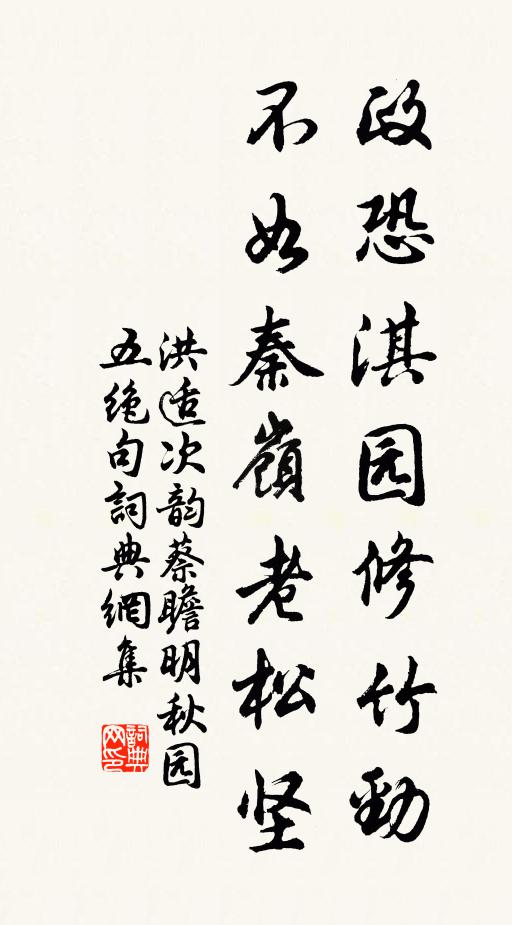 政恐淇园修竹勁
不如秦嶺老松坚
洪适次韵蔡瞻明秋园
五绝句詞典網集
詞典网印